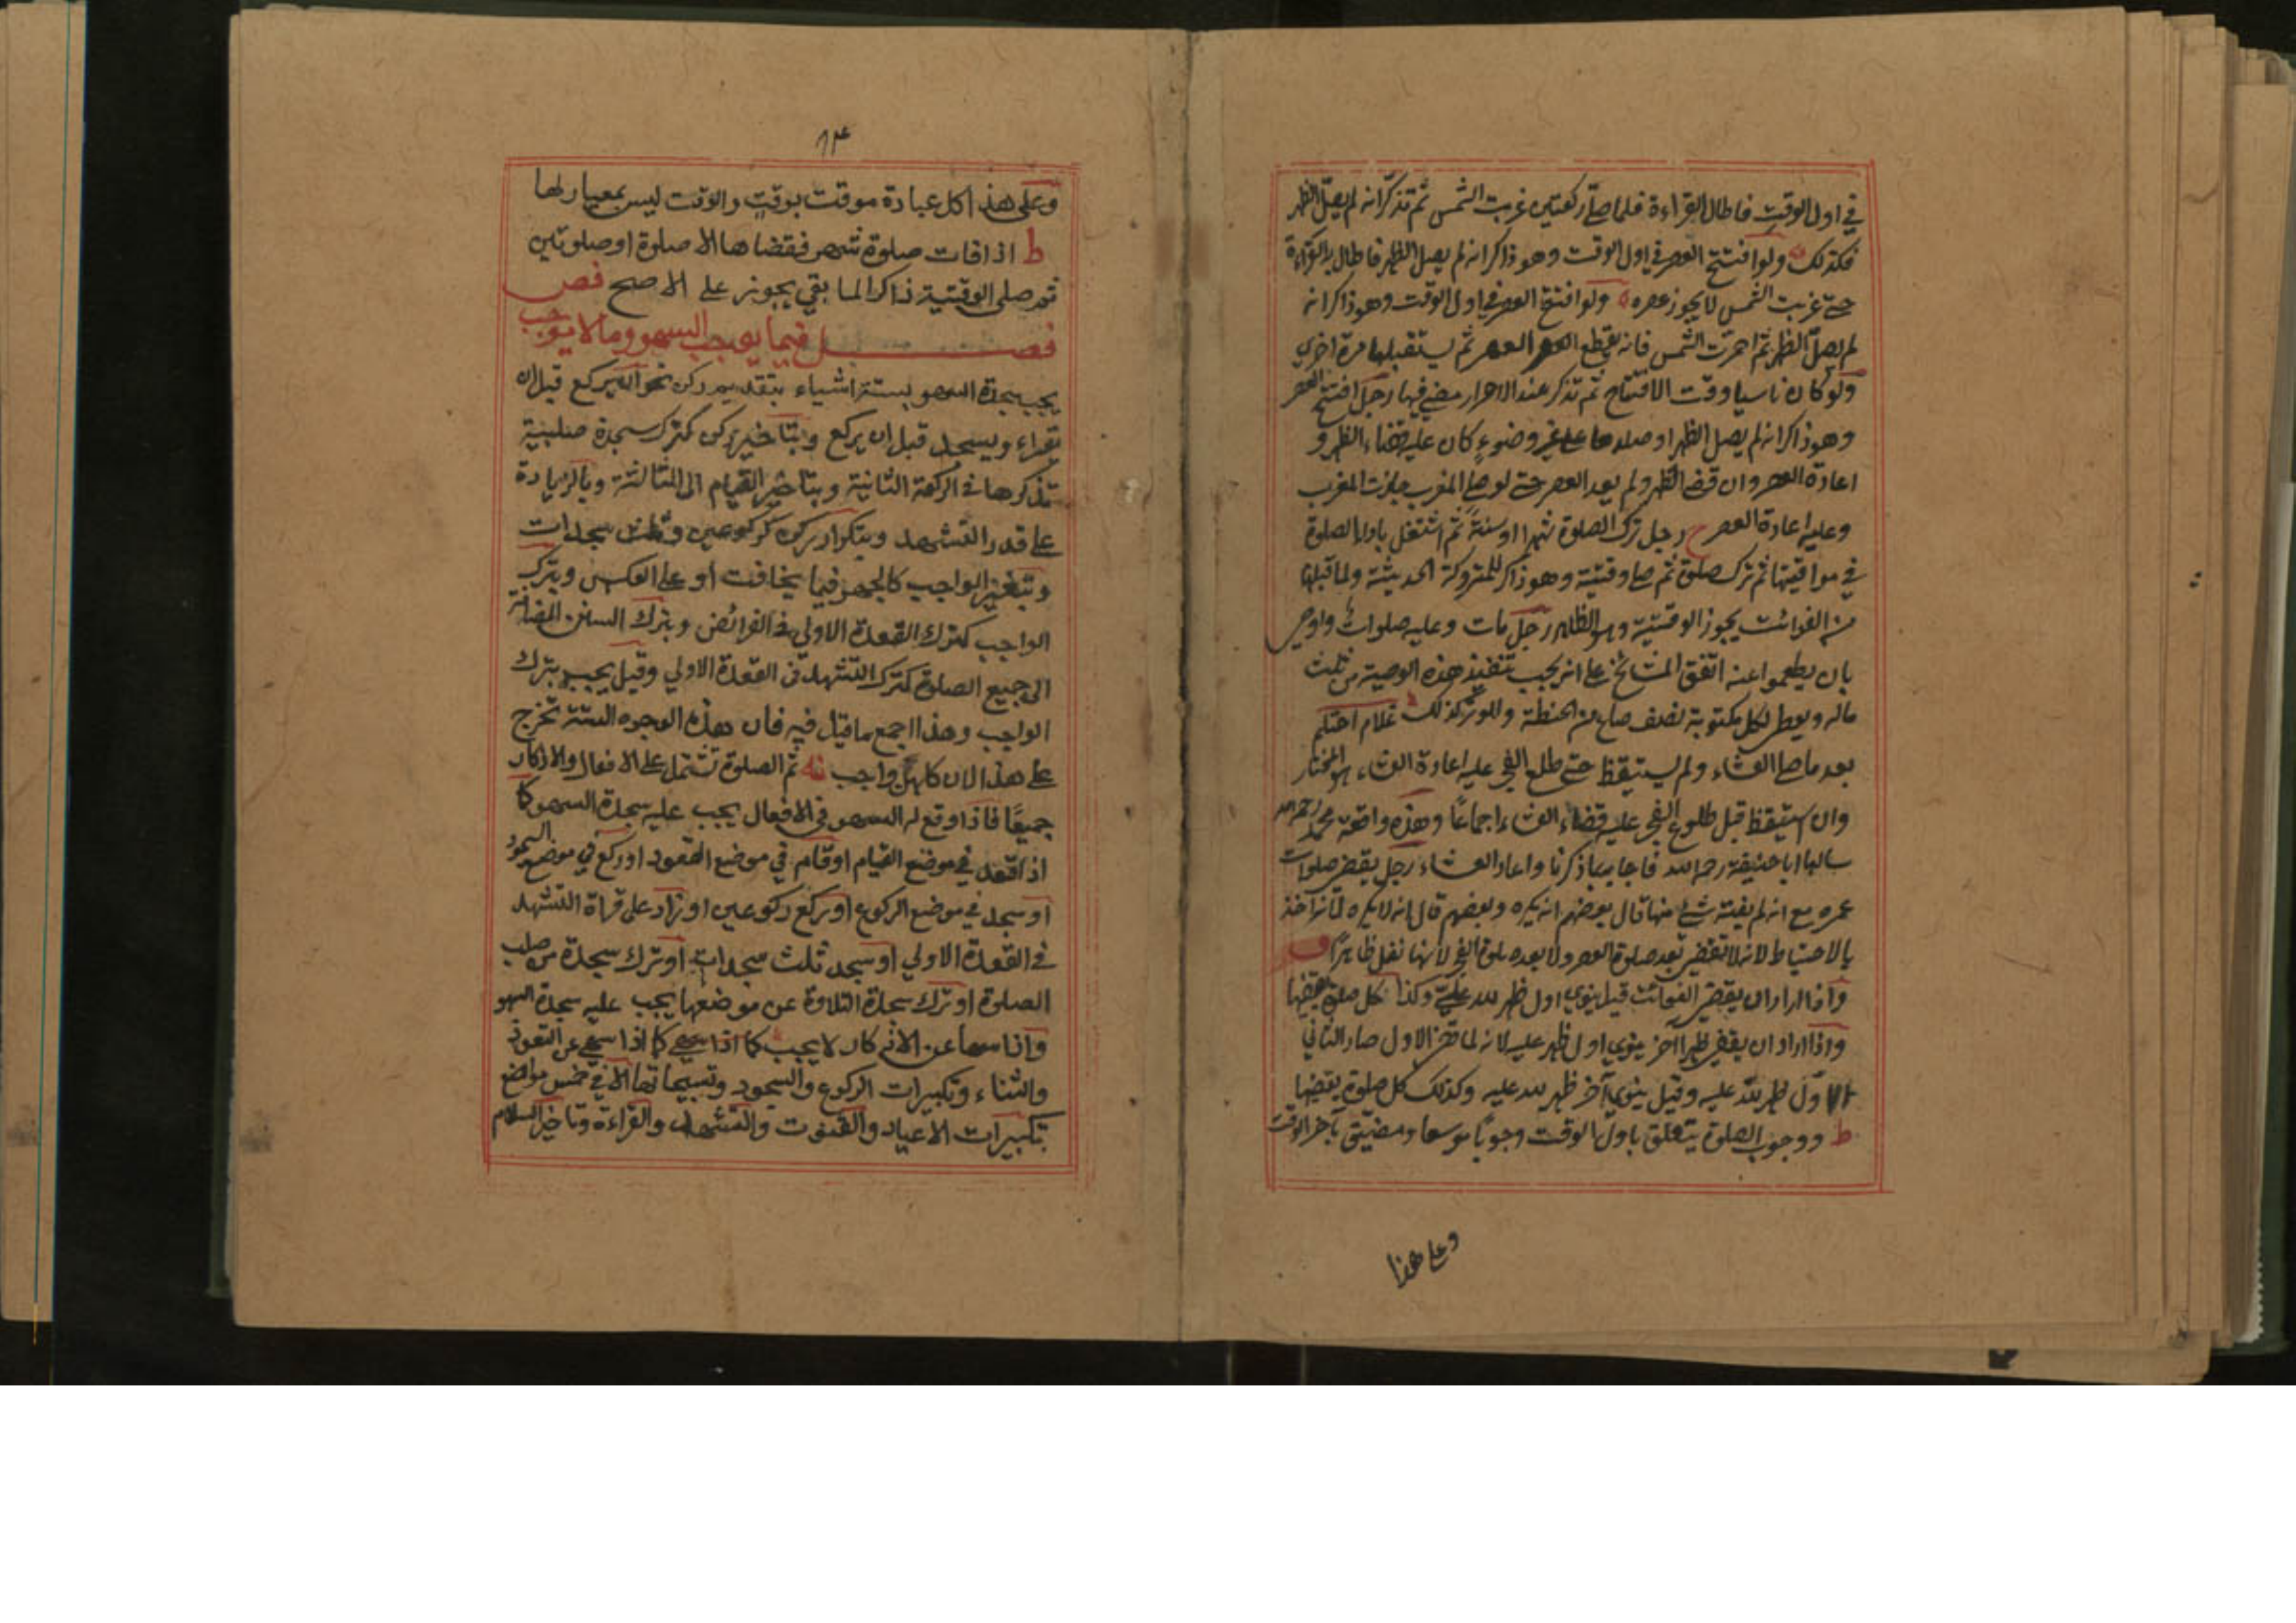 في اول الوقت فاطال القراءة فلما صلى ركعتين غربت الشمس ثم تذكر انه لم يصل الظهر
فكذلك ولو افتتح العصر في اول الوقت وهو ذاكر انه لم يصل الظهر فاطال بالقراءة
حتى غربت الشمس لا يجوز عصره ولو افتتح العصر في اول الوقت وهو ذاكر انه
لم يصل الظهر ثم احمرت الشمس فانه يقطع العصر العصر ثم يستقبلها مرة اخرى
ولو كان ناسيا وقت الافتتاح ثم تذكر عند الاحمرار مضى فيها رجل افتتح العصر
وهو ذاكر انه لم يصل الظهر او صلاها على غير وضوء كان عليه قضاء الظهر و
اعادة العصر وان قضى الظهر ولم يعد العصر حتى لو صلى المغرب جازت المغرب
وعليه اعادة العصر ح رجل ترك الصلوة شهرا او سنة ثم اشتغل باداء الصلوة
في مواقيتها ثم ترك صلوة ثم صلى وقتية وهو ذاكر للمتروكة الحديثة ولما قبلها
من الفوائت يجوز الوقتية وهو الظاهر رجل مات وعليه صلوات واوصى
بان يطعموا عنه اتفق المشائخ على انه يجب تنفيذ هذه الوصية من ثلث
ماله ويعطى لكل مكتوبة نصف صاع من الحنطة وللوتر كذلك غلام احتلم
بعد ما صلى العشاء ولم يستيقظ حتى طلع الفجر عليه اعادة العشاء هو المختار
وان استيقظ قبل طلوع الفجر عليه قضاء العشاء اجماعا وهذه واقعة محمد رحمه الله
سالها ابا حنيفة رحمه الله فاجابه بما ذكرنا واعاد العشاء رجل يقضي صلوات
عمره مع انه لم يفته شئ منها قال بعضهم انه يكره وبعضهم قال انه لا يكره لانه اخذ
بالاحتياط لانه لا تقضى بعد صلوة العصر ولا بعد صلوة الفجر لانها نفل ظاهرا ف
واذا اراد ان يقضي الفوائت قيل ينوي اول ظهر لله عليّ وكذا كل صلوة يقضيها
واذا اراد ان يقضي ظهرا آخر ينوي اول ظهر عليه لانه لما قضى الاول صار الثاني
الاول ظهر لله عليه وقيل ينوي آخر ظهر لله عليه وكذلك كل صلوة يقضيها
ط ووجوب الصلوة يتعلق باول الوقت وجوبا موسعا ومضيق بآخر الوقت
وعلى هذا
٦٣
وعلى هذا كل عبادة موقت بوقت والوقت ليس بمعيار لها
ط اذا فات صلوة شهر فقضاها الا صلوة او صلوتين
ثم صلى الوقتية ذاكر لما بقي يجوز على الاصح فصـ
فصـــل فيما يوجب السهو وما لا يوجب
يجب سجدة السهو بستة اشياء بتقديم ركن نحو ان يركع قبل ان
يقراء ويسجد قبل ان يركع وبتاخير ركن كترك سجدة صلبية
تذكرها في الركعة الثانية وبتاخير القيام الى الثالثة وبالزيادة
على قدر التشهد وبتكرار ركن كركوعين وثلث سجدات
وبتغير الواجب كالجهر فيما يخافت او على العكس وبترك
الواجب كترك القعدة الاولى في الفرائض وبترك السنن المضافة
الى جميع الصلوة كترك التشهد في القعدة الاولي وقيل يجب بترك
الواجب وهذا اجمع ما قيل فيه فان هذه الوجوه الستة تخرج
على هذا لان كلهن واجب ثم الصلوة تشتمل على الافعال والاذكار
جميعا فاذا وقع له السهو في الافعال يجب عليه سجدة السهو كما
اذا قعد في موضع القيام او قام في موضع القعود او ركع في موضع السجود
او سجد في موضع الركوع او يركع ركوعين او زاد على قراة التشهد
في القعدة الاولي او سجد ثلث سجدات او ترك سجدة من صلب
الصلوة او ترك سجدة التلاوة عن موضعها يجب عليه سجدة السهو
واذا سها عن الاذكار لا يجب كما اذا سهى كما اذا سهى عن التعوذ
والثناء وتكبيرات الركوع والسجود وتسبيحاتها الا في خمس مواضع
تكبيرات الاعياد والقنوت والتشهد والقراءة وتاخير السلام